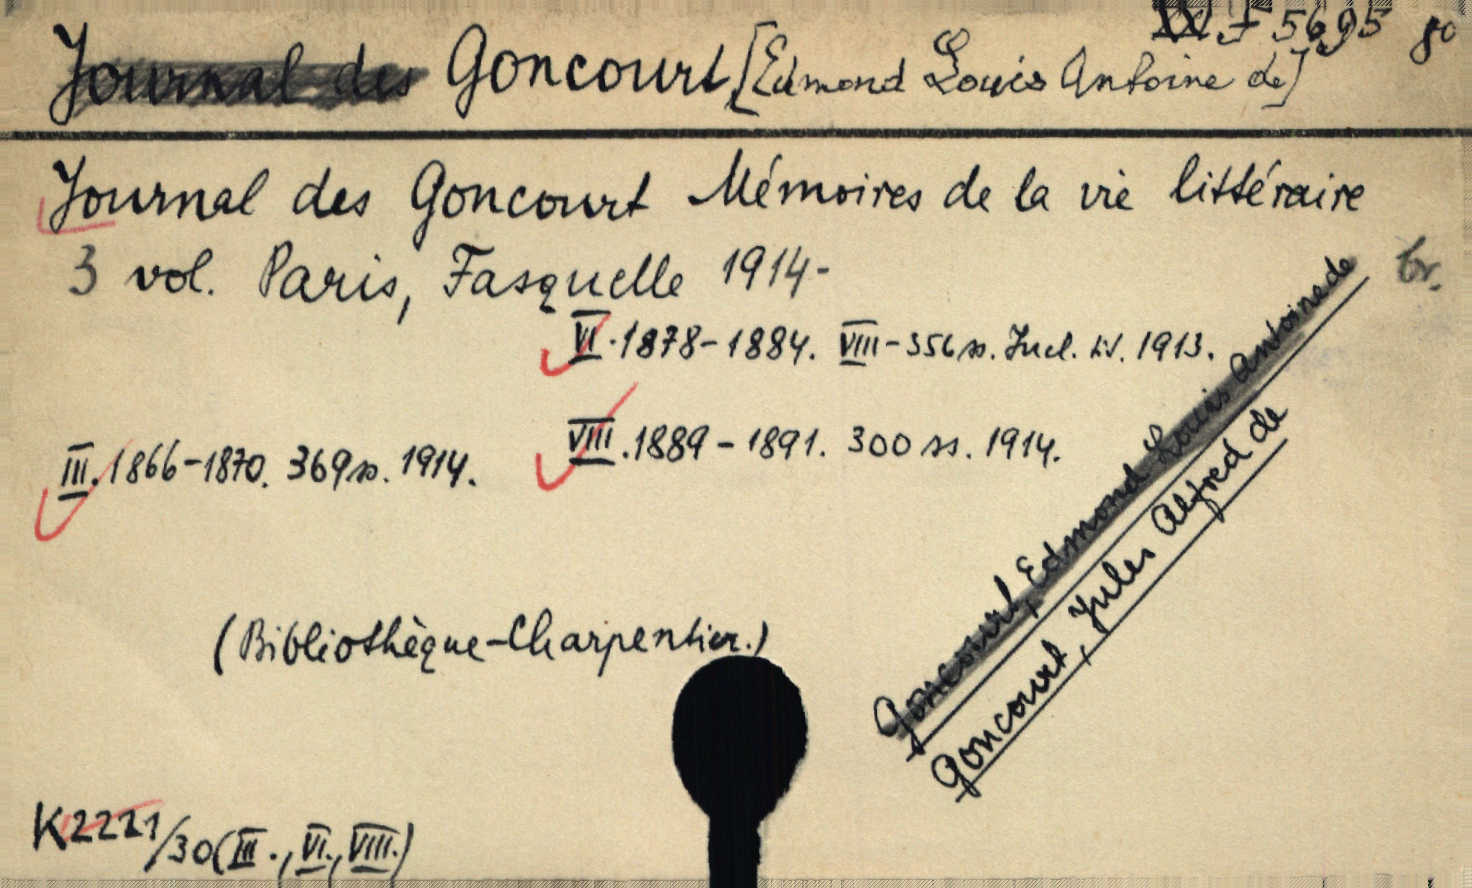 XXI F 5695 8°
Journal des Goncourt [Edmond Louis Antoine de]
Journal des Goncourt Mémoires de la vie littéraire
3 vol. Paris, Fasquelle 1914-
br.
VI. 1878-1884. VIII-356 ss. 1913.
VIII. 1889-1891. 300 ss. 1914.
III. 1866-1870. 369 ss. 1914.
Goncourt, Edmond Louis Antoine de
Goncourt, Jules Alfred de
(Bibliothèque-Charpentier.)
K2221/30 (III., VI., VIII.)